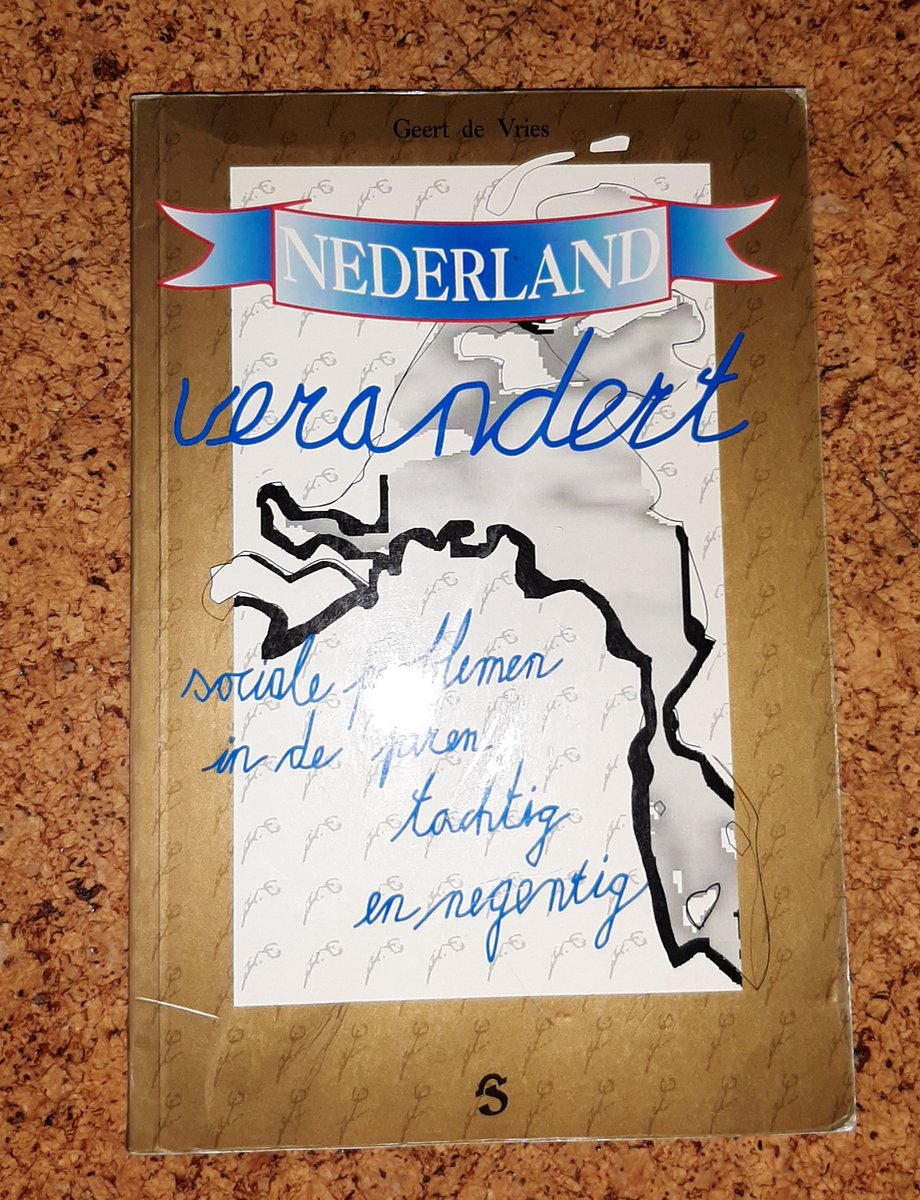 Geert de Vries
NEDERLAND
verandert
sociale problemen
in de jaren
tachtig
en negentig
S